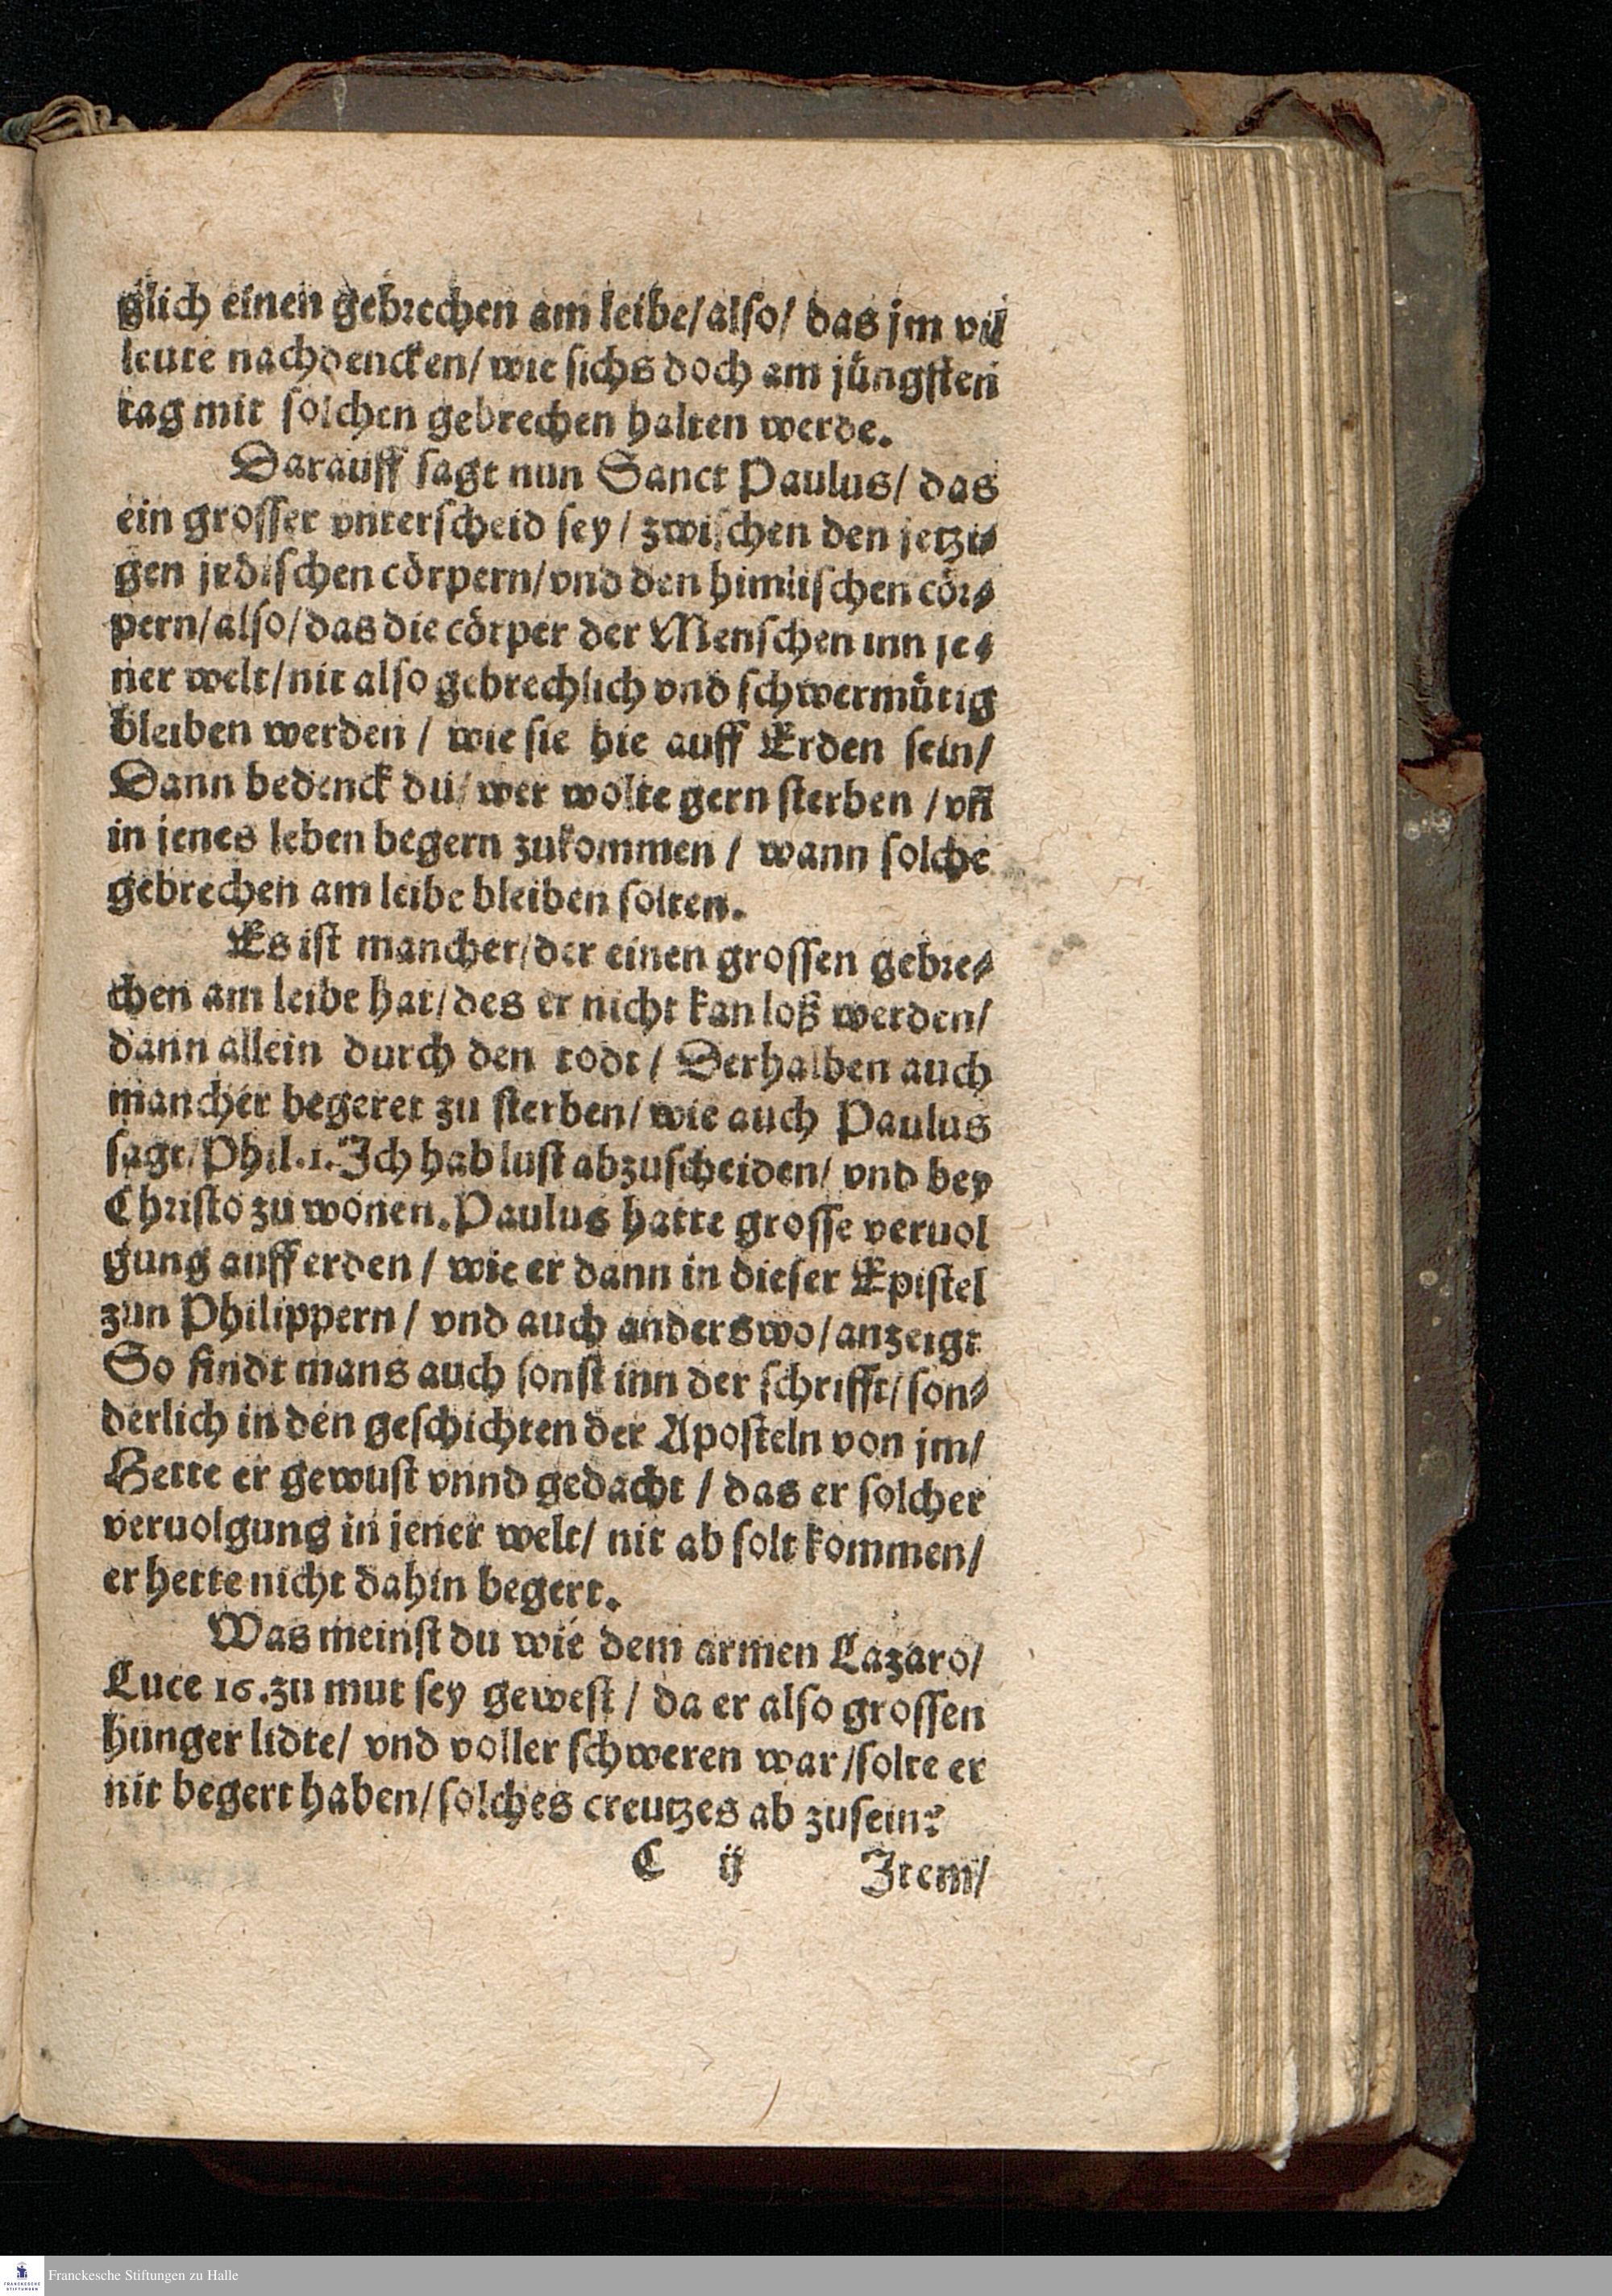 glich einen gebrechen am leibe/also/ das jm vil
leute nachdencken/ wie sichs doch am jüngsten
tag mit solchen gebrechen halten werde.
Darauff sagt nun Sanct Paulus/ das
ein grosser vnterscheid sey/ zwischen den jetzi-
gen jrdischen cörpern/vnd den himlischen cör-
pern/also/das die cörper der Menschen inn je-
ner welt/nit also gebrechlich vnd schwermütig
bleiben werden / wie sie hie auff Erden sein/
Dann bedenck du/ wer wolte gern sterben / vñ
in jenes leben begern zukommen / wann solche
gebrechen am leibe bleiben solten.
Es ist mancher/der einen grossen gebre-
chen am leibe hat/des er nicht kan loß werden/
dann allein durch den todt / Derhalben auch
mancher begeret zu sterben/ wie auch Paulus
sagt/Phil.1.Ich hab lust abzuscheiden/ vnd bey
Christo zu wonen.Paulus hatte grosse veruol
gung auff erden / wie er dann in dieser Epistel
zun Philippern / vnd auch anderswo/anzeigt
So findt mans auch sonst inn der schrifft/son-
derlich in den geschichten der Aposteln von jm/
Hette er gewust vnnd gedacht / das er solcher
veruolgung in jener welt/ nit ab solt kommen/
er hette nicht dahin begert.
Was meinst du wie dem armen Lazaro/
Luce 16.zu mut sey gewest / da er also grossen
hunger lidte/ vnd voller schweren war/solte er
nit begert haben/solches creutzes ab zusein?
C ij Item/
Franckesche Stiftungen zu Halle
FRANCKESCHE
STIFTUNGEN